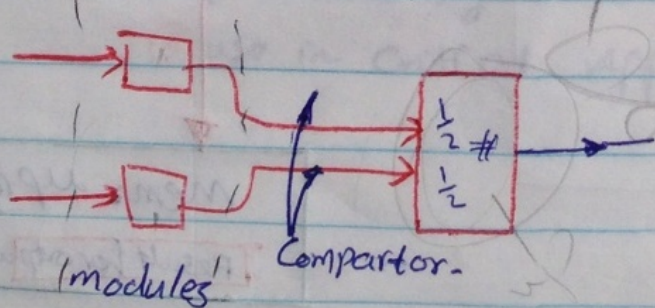 1/2 #
1/2
Compartor.
modules